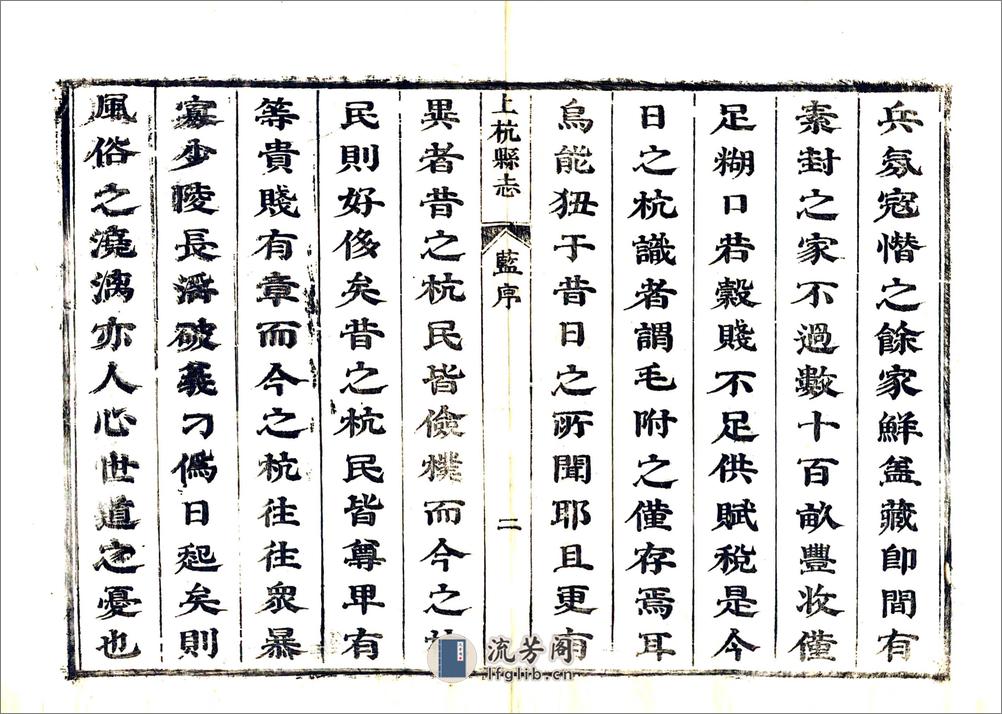 兵氛寇憯之餘家鮮葢藏卽間有
素封之家不過數十百畝豐收僅
足糊口若穀賤不足供賦稅是今
日之杭識者謂毛附之僅存焉耳
烏能狃于昔日之所聞耶且更有
上杭縣志 藍序 二
異者昔之杭民皆儉樸而今之杭
民則好侈矣昔之杭民皆尊卑有
等貴賤有章而今之杭往往衆暴
寡少陵長濟破義刁僞日起矣則
風俗之澆漓亦人心世道之憂也
流芳阁
lfglib.cn